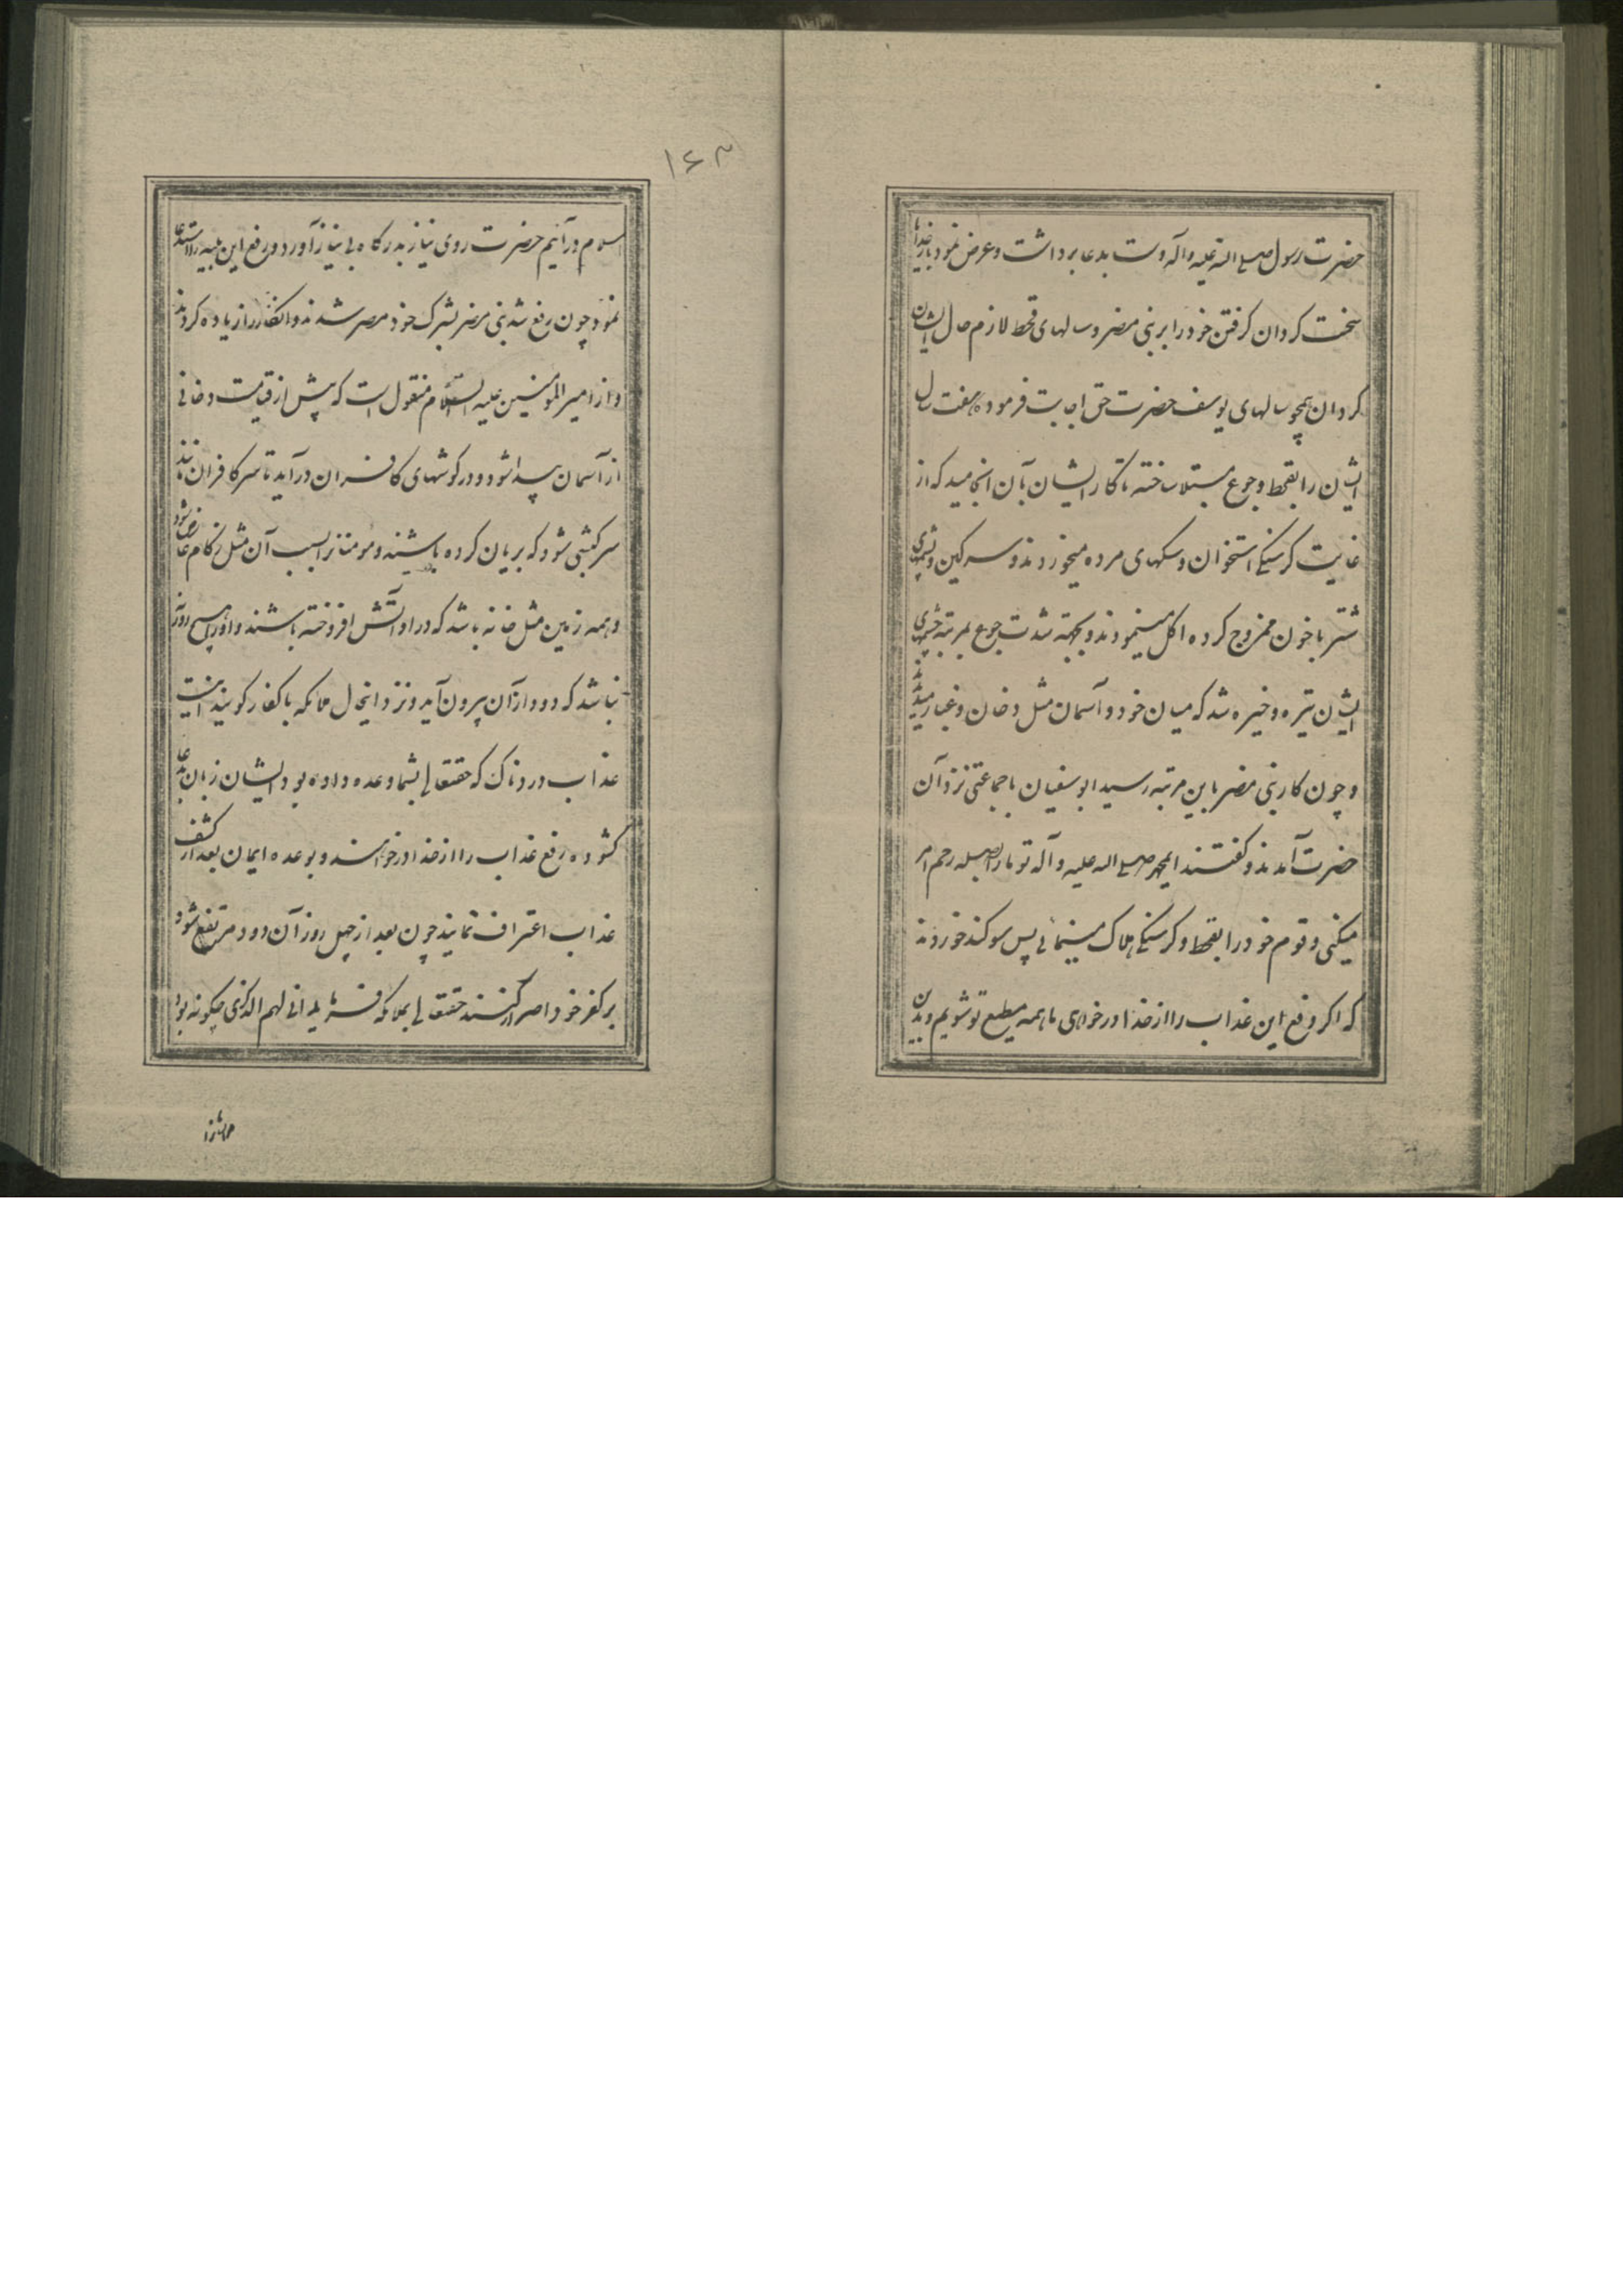 حضرت رسول صلی الله علیه و آله دست بدعا برداشت و عرض نمود بار خدایا
سخت کردان کرفتن خود را بر بنی مضر و سالهای قحط لازم حال ایشان
کردان همچو سالهای یوسف حضرت حق اجابت فرموده هفت سال
ایشان را بقحط و جوع مبتلا ساخته تا کار ایشان بآن انجامید که از
غایت کرسنکی استخوان و سکهای مرده میخوردند و سرکین و پشمهای
شتر با خون ممزوج کرده اکل مینمودند و بجهته شدت جوع بمرتبه چشمهای
ایشان تیره و خیره شد که میان خود و آسمان مثل دخان و غبار میدیدند
و چون کار بنی مضر باین مرتبه رسید ابوسفیان با جماعتی نزد آن
حضرت آمدند و کفتند ایمحمد صلی الله علیه و آله تو ما را بصله رحم امر
میکنی و قوم خود را بقحط و کرسنکی هلاک مینمائی پس سوکند خوردند
که اکر رفع این عذاب را از خدا درخواهی ما همه مطیع تو شویم و بدین
۱۶۳
اسلام درآئیم حضرت روی نیاز بدرکاه بی نیاز آورد و رفع این بلیه را استدعا
نمود چون رفع شد بنی مضر بشرک خود مصر شدند و انکار را زیاده کردند
و از امیر المومنین علیه السلام منقول است که پیش از قیامت دخانی
از آسمان پیدا شود و در کوشهای کافران درآید تا سر کافران مانند
سر کبشی شود که بریان کرده باشند و مومنانرا بسبب آن مثل زکام عارض شود
و همه زمین مثل خانه باشد که در او آتش افروخته باشند و او را هیچ روزنه
نباشد که دود از آن بیرون آید و نزد اینحال ملائکه با کفار کویند اینست
عذاب دردناک که حقتعالی بشما وعده داده بود ایشان زبان بدعا
کشوده رفع عذاب را از خدا درخواهند و بوعده ایمان بعد از کشف
عذاب اعتراف نمایند چون بعد از چهل روز آن دود مرتفع شود
بر کفر خود اصرار کنند حقتعالی بملائکه فرماید انی لهم الذکری چکونه بود